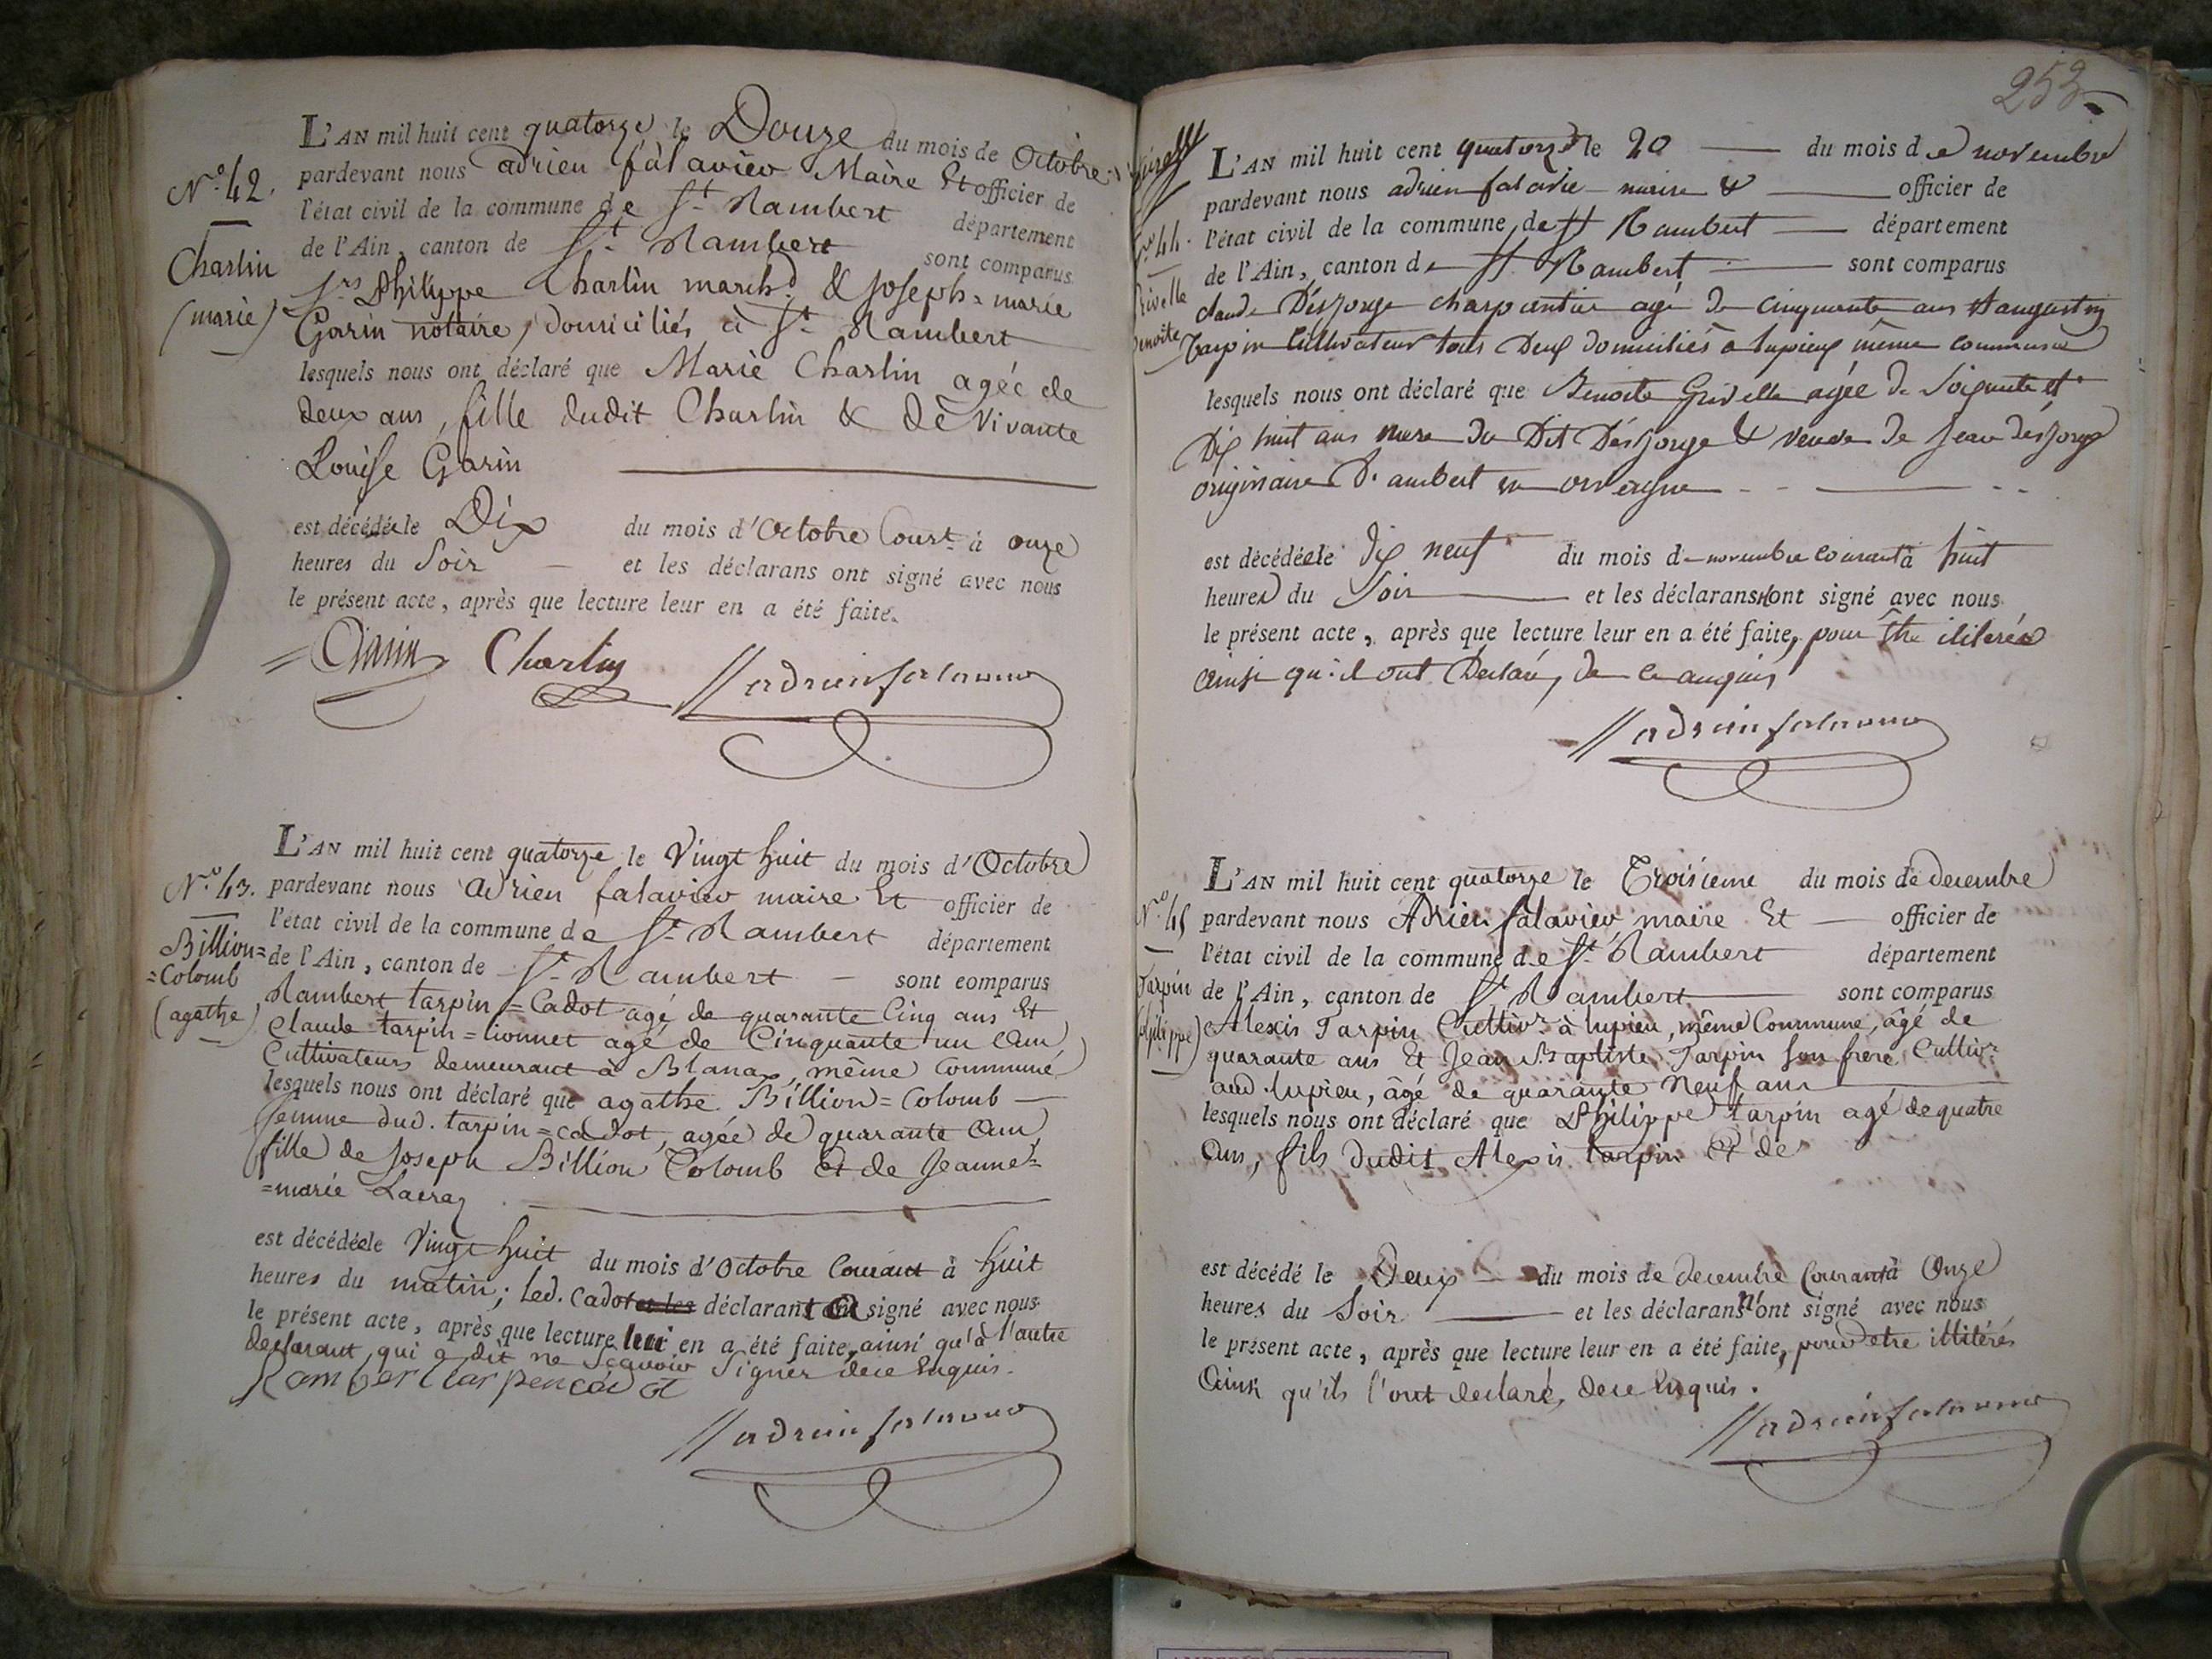 L'AN mil huit cent quatorze le Douze du mois de Octobre
pardevant nous adrien falavier Maire Et officier de
N.º 42.
l'état civil de la commune de St. Rambert département
de l'Ain, canton de St. Rambert sont comparus
Charlin
(marie)
Srs Philippe Charlin marchd. & Joseph=marie
Garin notaire, domiciliés à St. Rambert
lesquels nous ont déclaré que Marie Charlin agée de
deux ans, fille dudit Charlin & de Vivante
Louise Garin
est décédée le Dix du mois d'Octobre Court. à onze
heures du Soir et les déclarans ont signé avec nous
le présent acte, après que lecture leur en a été faite.
Garin Charlin adrien falavier
L'AN mil huit cent quatorze le Vingt huit du mois d'Octobre
N.º 43.
pardevant nous adrien falavier maire Et officier de
l'état civil de la commune de St. Rambert département
Billion=
=Colomb
(agathe)
de l'Ain, canton de St. Rambert sont comparus
Rambert tarpin=Cadot agé de quarante Cinq ans Et
Claude tarpin=lionnet agé de Cinquante un ans
Cultivateurs demeurant à Blanaz, même Commune
lesquels nous ont déclaré que agathe Billion=Colomb
femme dud. tarpin=cadot, agée de quarante ans
fille de Joseph Billion Colomb et de Jeanne=
=marie Lacraz
est décédée le Vingt huit du mois d'Octobre Courant à huit
heures du matin; led. Cadot et les déclarant a signé avec nous
le présent acte, après que lecture lui en a été faite, ainsi qu'à l'autre
declarant, qui a dit ne Sçavoir Signer de ce Enquis.
Rambert tarpen cadot
adrien falavier
253
L'AN mil huit cent quatorze le 20 du mois de novembre
pardevant nous adrien falavier maire & officier de
N.º 44.
l'état civil de la commune de St Rambert département
de l'Ain, canton de St. Rambert sont comparus
Grivelle
Benoite
claude Désjorge charpentier agé de cinquante ans & augustin
Tarpin Cultivateur tous deux domiciliés a lupieux même commune
lesquels nous ont déclaré que Benoite Grivelle agée de Soixante et
Dix huit ans mere du Dit Désjorge & veuve de Jean désjorge
originaire d'ambert en auvergne
est décédée le dix neuf du mois de novembre courant à huit
heures du Soir et les déclarans n'ont signé avec nous
le présent acte, après que lecture leur en a été faite, pour être ilitérés
ainsi qu'il ont Déclaré, de ce anquis
adrien falavier
L'AN mil huit cent quatorze le Troisieme du mois de decembre
N.º 45
pardevant nous Adrien falavier maire Et officier de
l'état civil de la commune de St. Rambert département
Tarpin
(philippe)
de l'Ain, canton de St. Rambert sont comparus
Alexis Tarpin Cultivr. à lupieu, même Commune, âgé de
quarante ans Et Jean Baptiste Tarpin son frere Cultivr.
aud. lupieu, âgé de quarante Neuf ans
lesquels nous ont déclaré que Philippe tarpin agé de quatre
ans, fils dudit Alexis tarpin Et de
est décédé le Deux du mois de decembre Courant à Onze
heures du Soir et les déclarans n'ont signé avec nous
le présent acte, après que lecture leur en a été faite, pour être illitérés
Ainsi qu'ils l'ont declaré, de ce Enquis.
adrien falavier